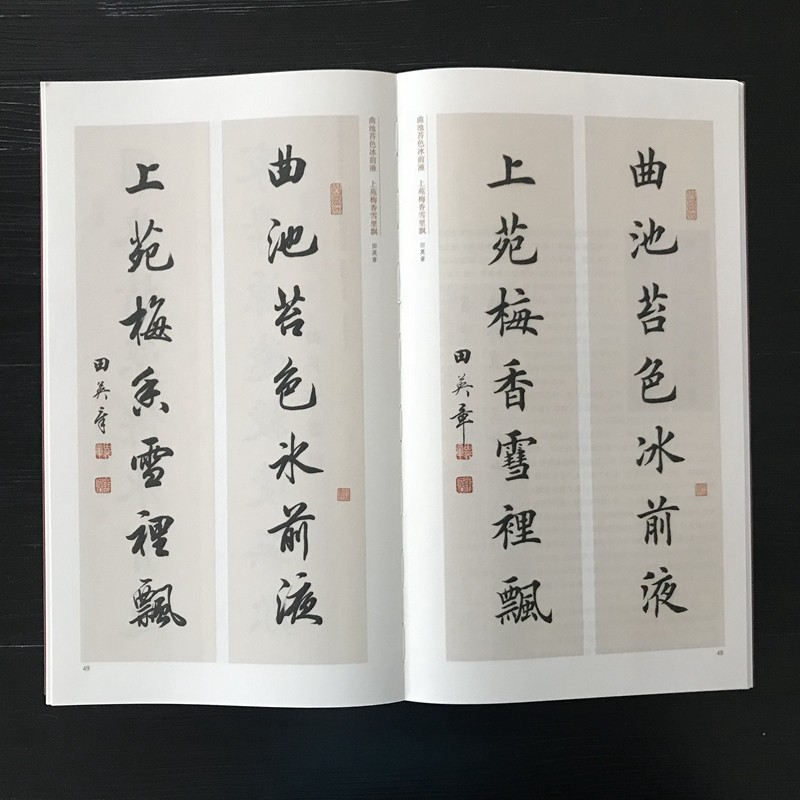 曲池苔色冰前液
上苑梅香雪裡飄
田英章
曲池苔色冰前液 上苑梅香雪里飘 田英章
48
曲池苔色氷前液
上苑梅香雪裡飄
田英章
曲池苔色冰前液 上苑梅香雪里飘 田英章
49